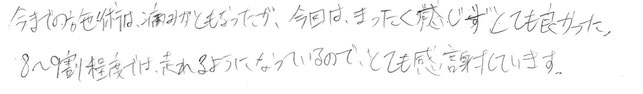 今までの方は施術は、痛みがともなったが、今回は、まったく感じずとても良かった。
8〜9割程度では、走れるようになっているので、とても感謝しています。